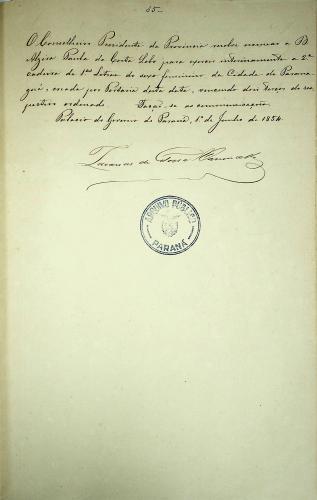 65
O Conselheiro Presidente da Provincia resolve nomear a D.
Alzira Paula da Costa Lobo para exercer interinamente a 2ª
cadeira de 1as Letras do sexo feminino da Cidade de Parana-
guá, creada por Portaria desta data, vencendo dous terços do res-
pectivo ordenado. Fação-se as communicações.
Palacio do Governo do Paraná, 1º de Junho de 1854.
Zacarias de Goes e Vasconcellos
ARQUIVO PÚBLICO
PARANÁ